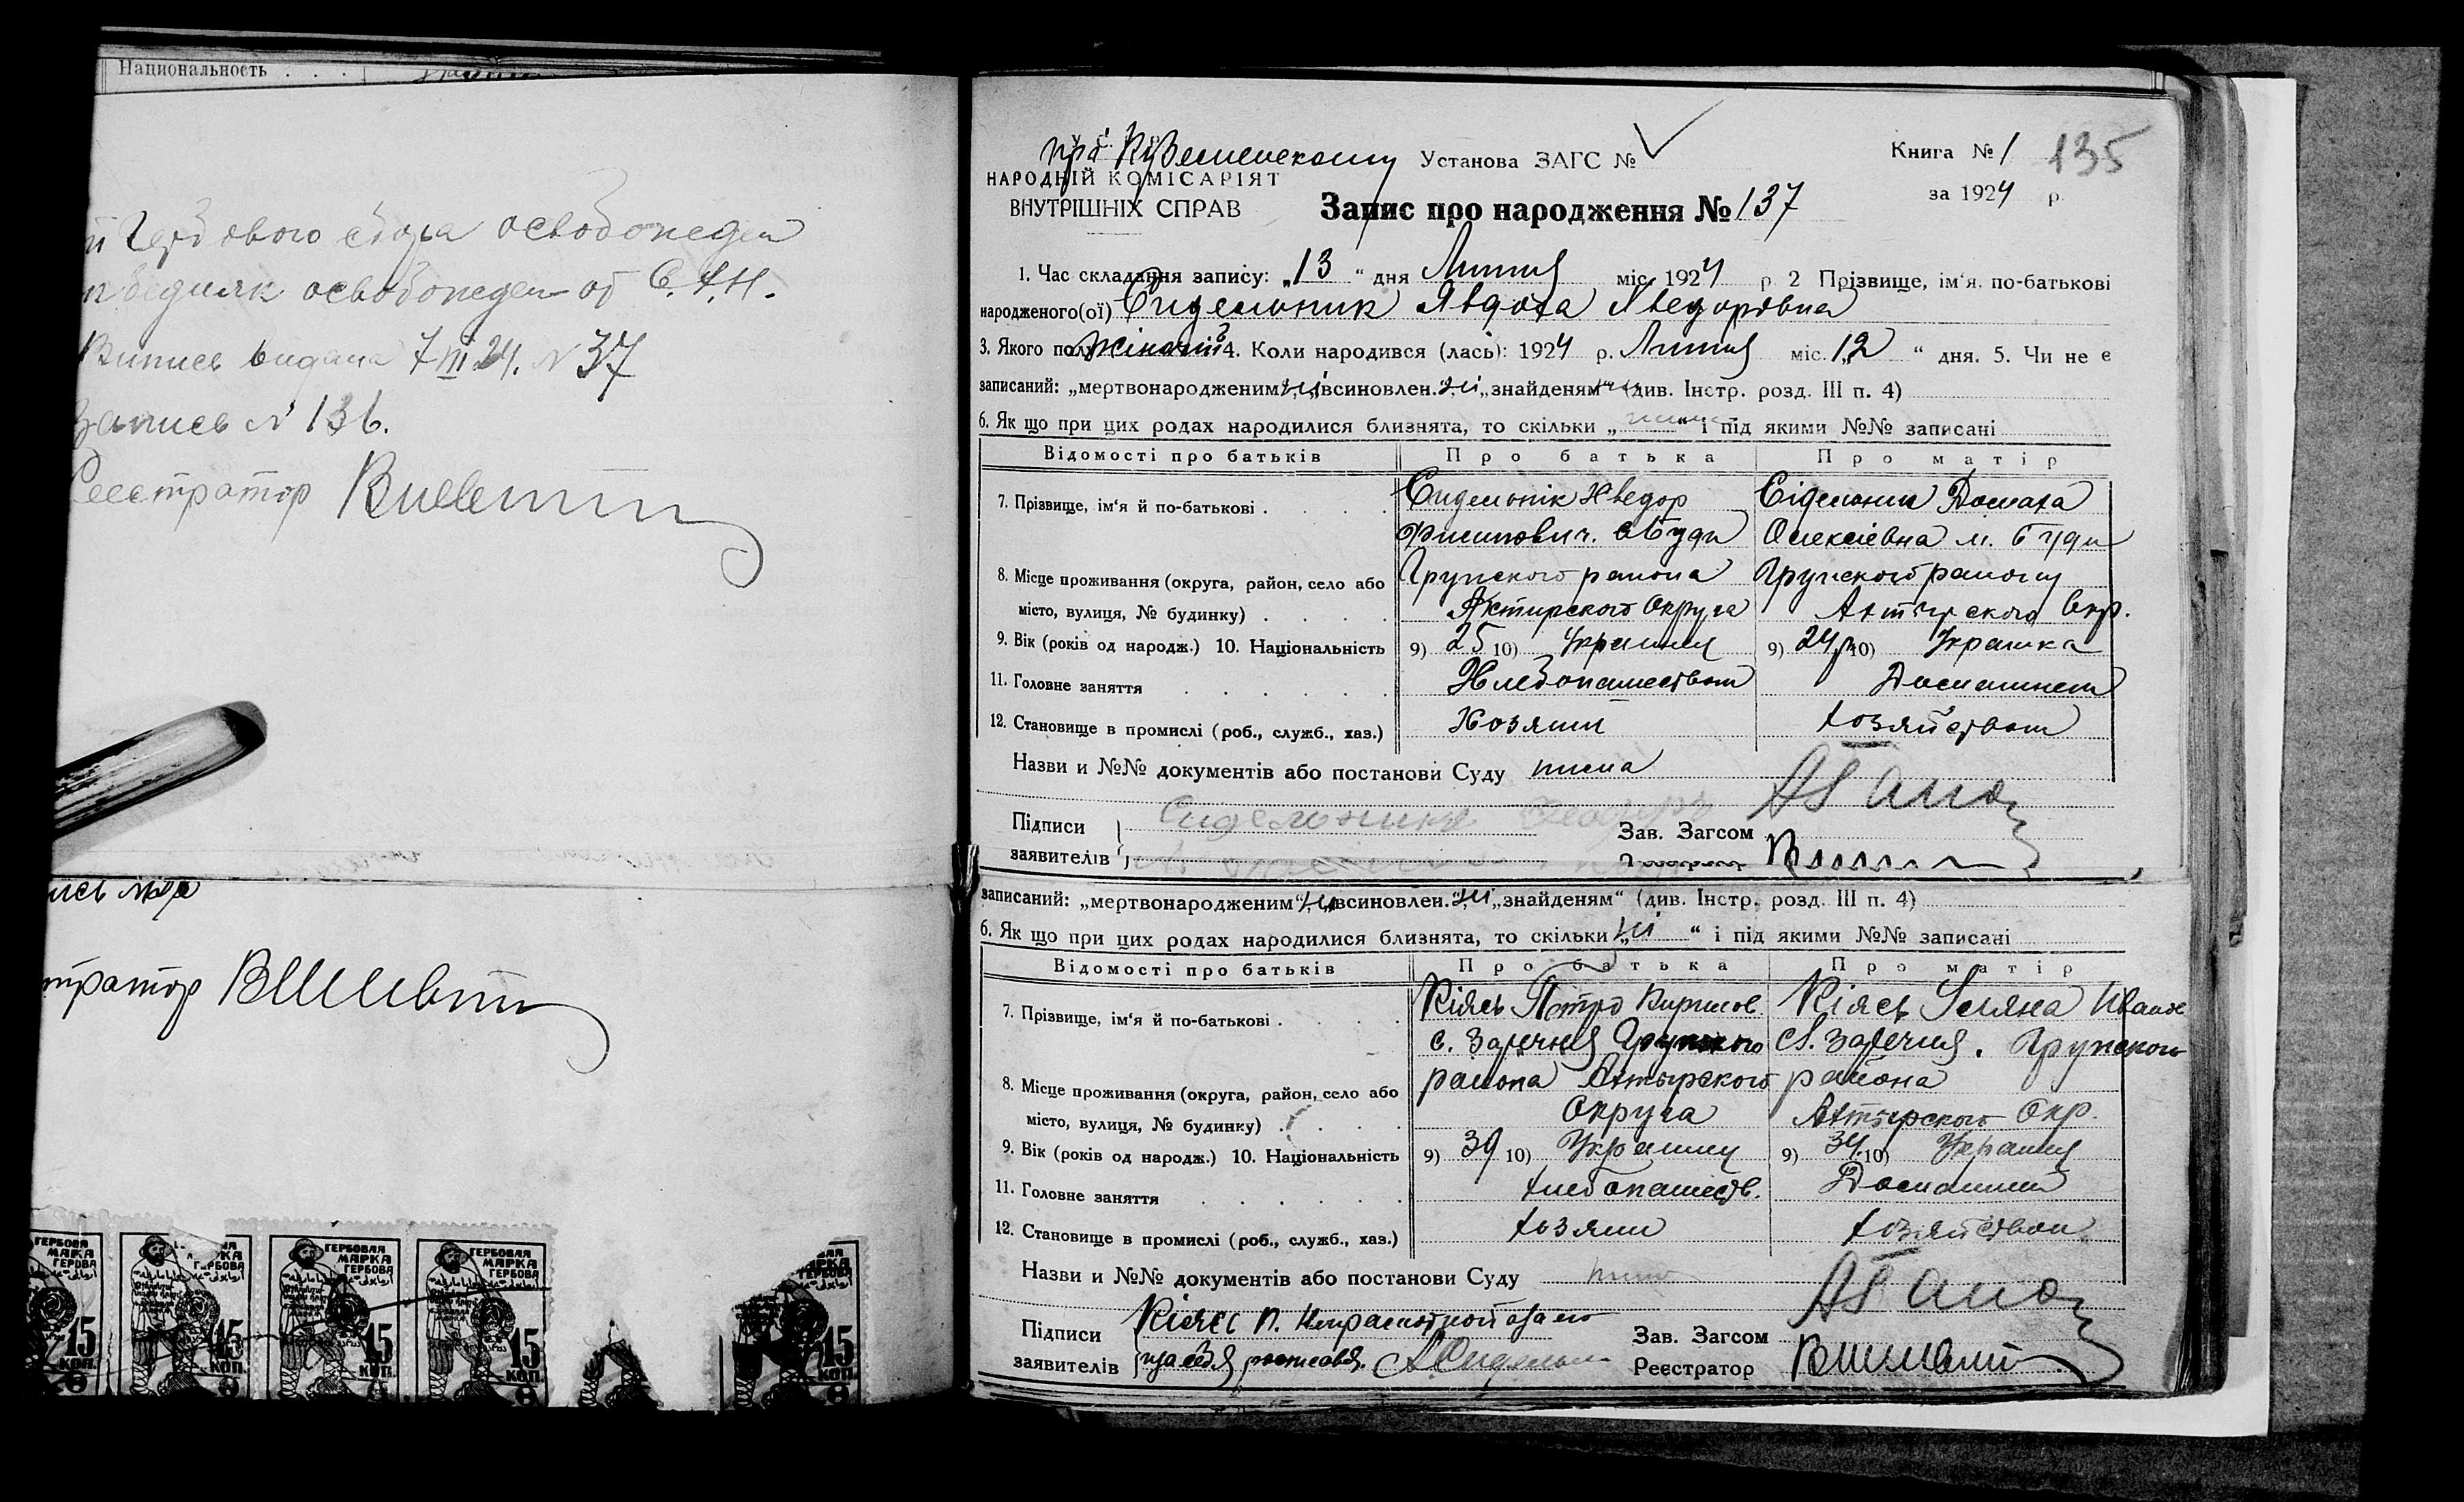 Национальность . . .
Гербового сбора освобожден
бедняк освобожден от С.Х.Н.
Випись видана 7 III 24. N 37
Запись N 136.
Реєстратор
ГЕРБОВАЯ МАРКА ГЕРБОВА
15 КОП.
ГЕРБОВАЯ МАРКА ГЕРБОВА
15 КОП.
ГЕРБОВАЯ МАРКА ГЕРБОВА
15 КОП.
15 КОП.
при Установа ЗАГС №
Книга № 1 135
НАРОДНІЙ КОМІСАРІЯТ
ВНУТРІШНІХ СПРАВ
за 1924 р.
Запис про народження № 137
1. Час складання запису: „13“ дня Липня міс. 1924 р. 2 Прізвище, ім‘я. по-батькові
народженого(ої) Сидельник Явдоха Хведоровна
3. Якого полу Жіночий 4. Коли народився (лась): 1924 р. Липня міс. „12“ дня. 5. Чи не є
записаний: „мертвонародженим“ ні „всиновлен.“ ні „знайденям“ (див. Інстр. розд. III п. 4)
6. Як що при цих родах народилися близнята, то скільки „ “ і під якими №№ записані
Відомості про батьків Про батька Про матір
7. Прізвище, ім‘я й по-батькові . . . . Сидельнік Хведор Сідельник Домаха
Филипович. с Буди Олексіевна м. Буди
8. Місце проживання (округа, район, село або Грунского района Грунского району
місто, вулиця, № будинку) . . . . Ахтирского Округа Ахтирского Окр.
9. Вік (років од народж.) 10. Національність 9) 25 10) Украинец 9) 24 10) Украинка
11. Головне заняття . . . . . . Хлебопашеством Домашнем
12. Становище в промислі (роб., служб., хаз.) Хозяин хозяйством
Назви и №№ документів або постанови Суду нима
Підписи Сидельник Феодор Зав. Загсом
заявителів
запись
записаний: „мертвонародженим“ ні „всиновлен.“ ні „знайденям“ (див. Інстр. розд. III п. 4)
6. Як що при цих родах народилися близнята, то скільки „ні“ і під якими №№ записані
Відомості про батьків Про батька Про матір
7. Прізвище, ім‘я й по-батькові . . . . Кіяєь Петро Кирилов. Кіяєь Іванов
с. Заречня Грунского с. Заречня. Грунского
8. Місце проживання (округа, район, село або района Ахтырского района
місто, вулиця, № будинку) . . . . Округа Ахтырского Окр.
9. Вік (років од народж.) 10. Національність 9) 39 10) Украинец 9) 34 10) Украин
11. Головне заняття . . . . . . хлебопашеств. Домашним
12. Становище в промислі (роб., служб., хаз.) хозяин хозяйством
Назви и №№ документів або постанови Суду
Підписи Кіяєь П. Неграмотной
заявителів Зав. Загсом
Реєстратор